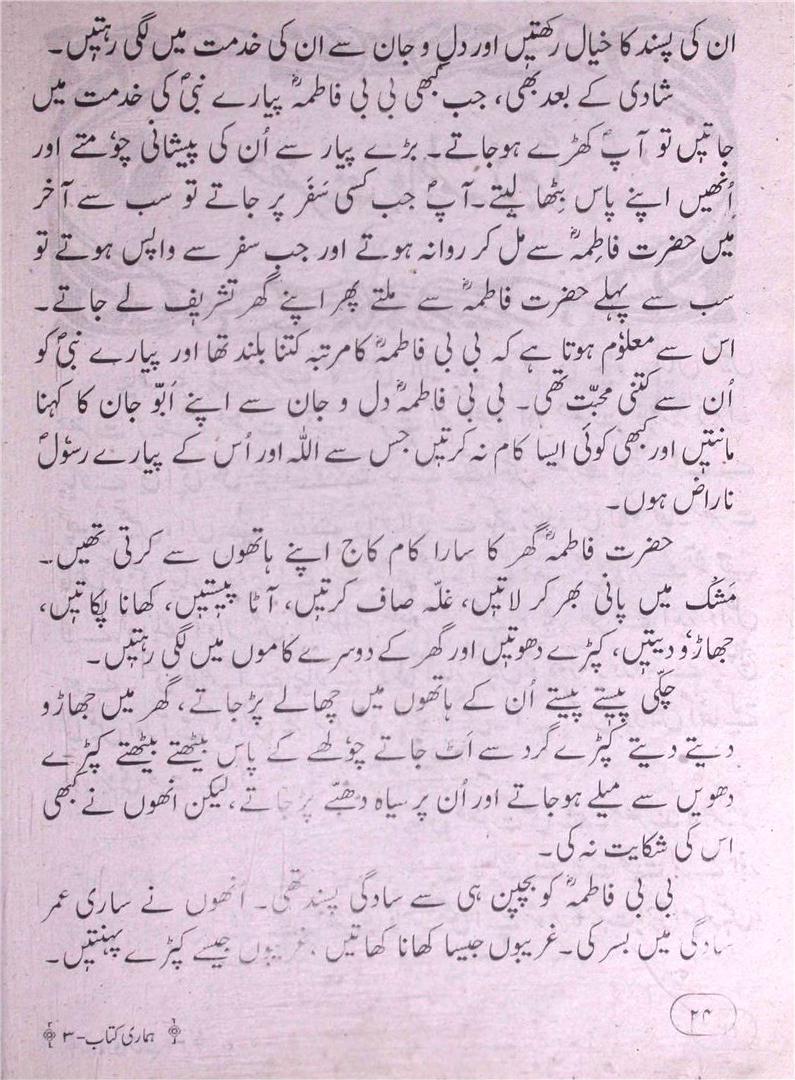 ان کی پسند کا خیال رکھتیں اور دل و جان سے ان کی خدمت میں لگی رہتیں۔
شادی کے بعد بھی، جب کبھی بی بی فاطمہؓ پیارے نبیؐ کی خدمت میں
جاتیں تو آپؐ کھڑے ہوجاتے۔ بڑے پیار سے اُن کی پیشانی چوٗمتے اور
اُنھیں اپنے پاس بِٹھا لیتے۔ آپؐ جب کسی سَفَر پر جاتے تو سب سے آخر
میں حضرت فاطِمہؓ سے مل کر روانہ ہوتے اور جب سفر سے واپس ہوتے تو
سب سے پہلے حضرت فاطمہؓ سے ملتے پھر اپنے گھر تشریف لے جاتے۔
اس سے معلوٗم ہوتا ہے کہ بی بی فاطمہؓ کا مرتبہ کتنا بلند تھا اور پیارے نبیؐ کو
اُن سے کتنی محبّت تھی۔ بی بی فاطمہؓ دل و جان سے اپنے اَبّو جان کا کہنا
مانتیں اور کبھی کوئی ایسا کام نہ کرتیں جس سے اللہ اور اُس کے پیارے رسوٗلؐ
ناراض ہوں۔
حضرت فاطمہؓ گھر کا سارا کام کاج اپنے ہاتھوں سے کرتی تھیں۔
مَشک میں پانی بھر کر لاتیں، غلّہ صاف کرتیں، آٹا پیستیں، کھانا پکاتیں،
جھاڑوٗ دیتیں، کپڑے دھوتیں اور گھر کے دوسرے کاموں میں لگی رہتیں۔
چکّی پیستے پیستے اُن کے ہاتھوں میں چھالے پڑجاتے، گھر میں جھاڑو
دیتے دیتے کپڑے گرد سے اَٹ جاتے چوٗلھے کے پاس بیٹھتے بیٹھتے کپڑے
دھویں سے میلے ہوجاتے اور اُن پر سیاہ دھبّے پڑجاتے، لیکن انھوں نے کبھی
اس کی شکایت نہ کی۔
بی بی فاطمہؓ کو بچپن ہی سے سادگی پسند تھی۔ اُنھوں نے ساری عمر
سادگی میں بسر کی۔ غریبوں جیسا کھانا کھاتیں، غریبوں جیسے کپڑے پہنتیں۔
۲۴
ہماری کتاب-۳